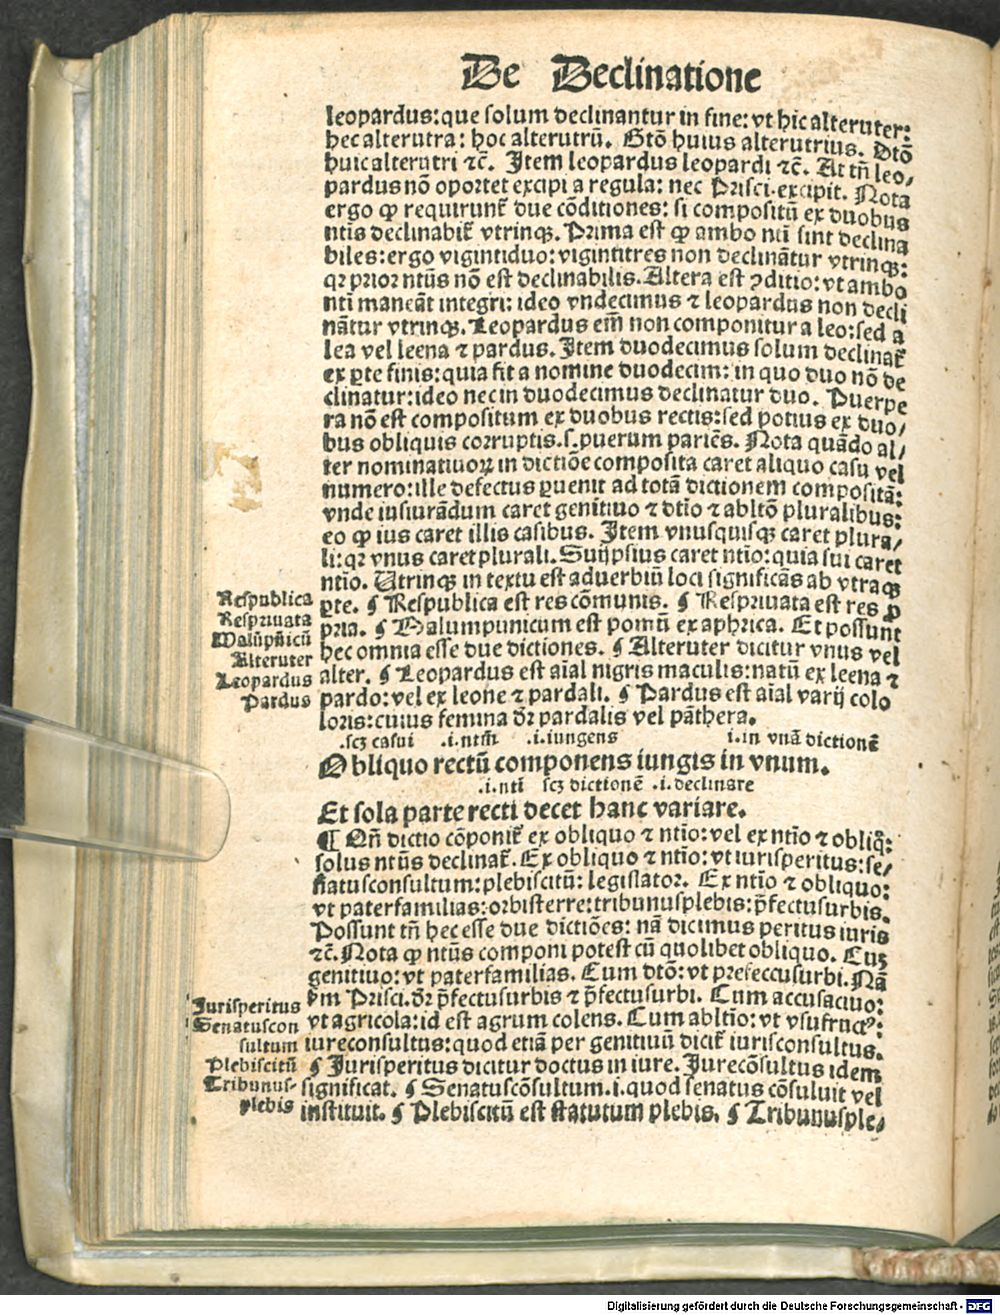 De Declinatione
leopardus: que solum declinantur in fine: vt hic alteruter:
hec alterutra: hoc alterutrũ. Gtõ huius alterutrius. Dtõ
huic alterutri ⁊c̃. Item leopardus leopardi ⁊c̃. At tñ leo/
pardus nõ oportet excipi a regula: nec Prisci. excipit. Nota
ergo ꝙ requirunt᷑ due cõditiones: si compositũ ex duobus
ntis declinabit᷑ vtrinqꝫ. Prima est ꝙ ambo nti sint declina
biles: ergo vigintiduo: vigintitres non declinãtur vtrinqꝫ:
qꝛ prior ntũs nõ est declinabilis. Altera est ꝯditio: vt ambo
nti maneãt integri: ideo vndecimus ⁊ leopardus non decli
nãtur vtrinqꝫ. Leopardus em̃ non componitur a leo: sed a
lea vel leena ⁊ pardus. Item duodecimus solum declinat᷑
ex ꝑte finis: quia fit a nomine duodecim: in quo duo nõ de
clinatur: ideo nec in duodecimus declinatur duo. Puerpe
ra nõ est compositum ex duobus rectis: sed potius ex duo/
bus obliquis corruptis. s. puerum pariẽs. Nota quãdo al/
ter nominatiuoꝝ in dictiõe composita caret aliquo casu vel
numero: ille defectus ꝑuenit ad totã dictionem compositã:
vnde iusiurãdum caret genitiuo ⁊ dtĩo ⁊ abltõ pluralibus:
eo ꝙ ius caret illis casibus. Item vnusquisqꝫ caret plura/
li: qꝛ vnus caret plurali. Suijpsius caret ntĩo: quia sui caret
ntĩo. Utrinqꝫ in textu est aduerbiũ loci significãs ab vtraqꝫ
ꝑte. ¶ Respublica est res cõmunis. ¶ Respriuata est res ꝓ
pria. ¶ Malumpunicum est pomũ ex aphrica. Et possunt
hec omnia esse due dictiones. ¶ Alteruter dicitur vnus vel
alter. ¶ Leopardus est aĩal nigris maculis: natũ ex leena ⁊
pardo: vel ex leone ⁊ pardali. ¶ Pardus est aĩal varij colo
loris: cuius femina dr̃ pardalis vel pãthera.
Respublica
Respriuata
Malũpũicũ
Alteruter
Leopardus
Pardus
.scꝫ casui .i. ntm̃ .i. iungens i. in vnã dictionẽ
Obliquo rectũ componens iungis in vnum.
.i. nti scꝫ dictionẽ .i. declinare
Et sola parte recti decet hanc variare.
¶ Qñ dictio cõponit᷑ ex obliquo ⁊ ntĩo: vel ex ntĩo ⁊ obliq̃:
solus ntũs declinat᷑. Ex obliquo ⁊ ntĩo: vt iurisperitus: se/
natusconsultum: plebiscitũ: legislator. Ex ntĩo ⁊ obliquo:
vt paterfamilias: orbisterre: tribunusplebis: p̃fectusurbis.
Possunt tñ hec esse due dictiões: nã dicimus peritus iuris
⁊c̃. Nota ꝙ ntũs componi potest cũ quolibet obliquo. Cuꝫ
genitiuo: vt paterfamilias. Cum dtõ: vt prefeccusurbi. Nã
ẜm Prisci. dr̃ p̃fectusurbis ⁊ p̃fectusurbi. Cum accusaciuo:
vt agricola: id est agrum colens. Cum abltĩo: vt vsufructꝰ:
iureconsultus: quod etiã per genitiuũ dicit᷑ iurisconsultus.
¶ Jurisperitus dicitur doctus in iure. Jurecõsultus idem
significat. ¶ Senatuscõsultum .i. quod senatus cõsuluit vel
instituit. ¶ Plebiscitũ est statutum plebis. ¶ Tribunusple/
Jurisperitus
Senatuscon
sultum
Plebiscitũ
Tribunus-
plebis
Digitalisierung gefördert durch die Deutsche Forschungsgemeinschaft - DFG